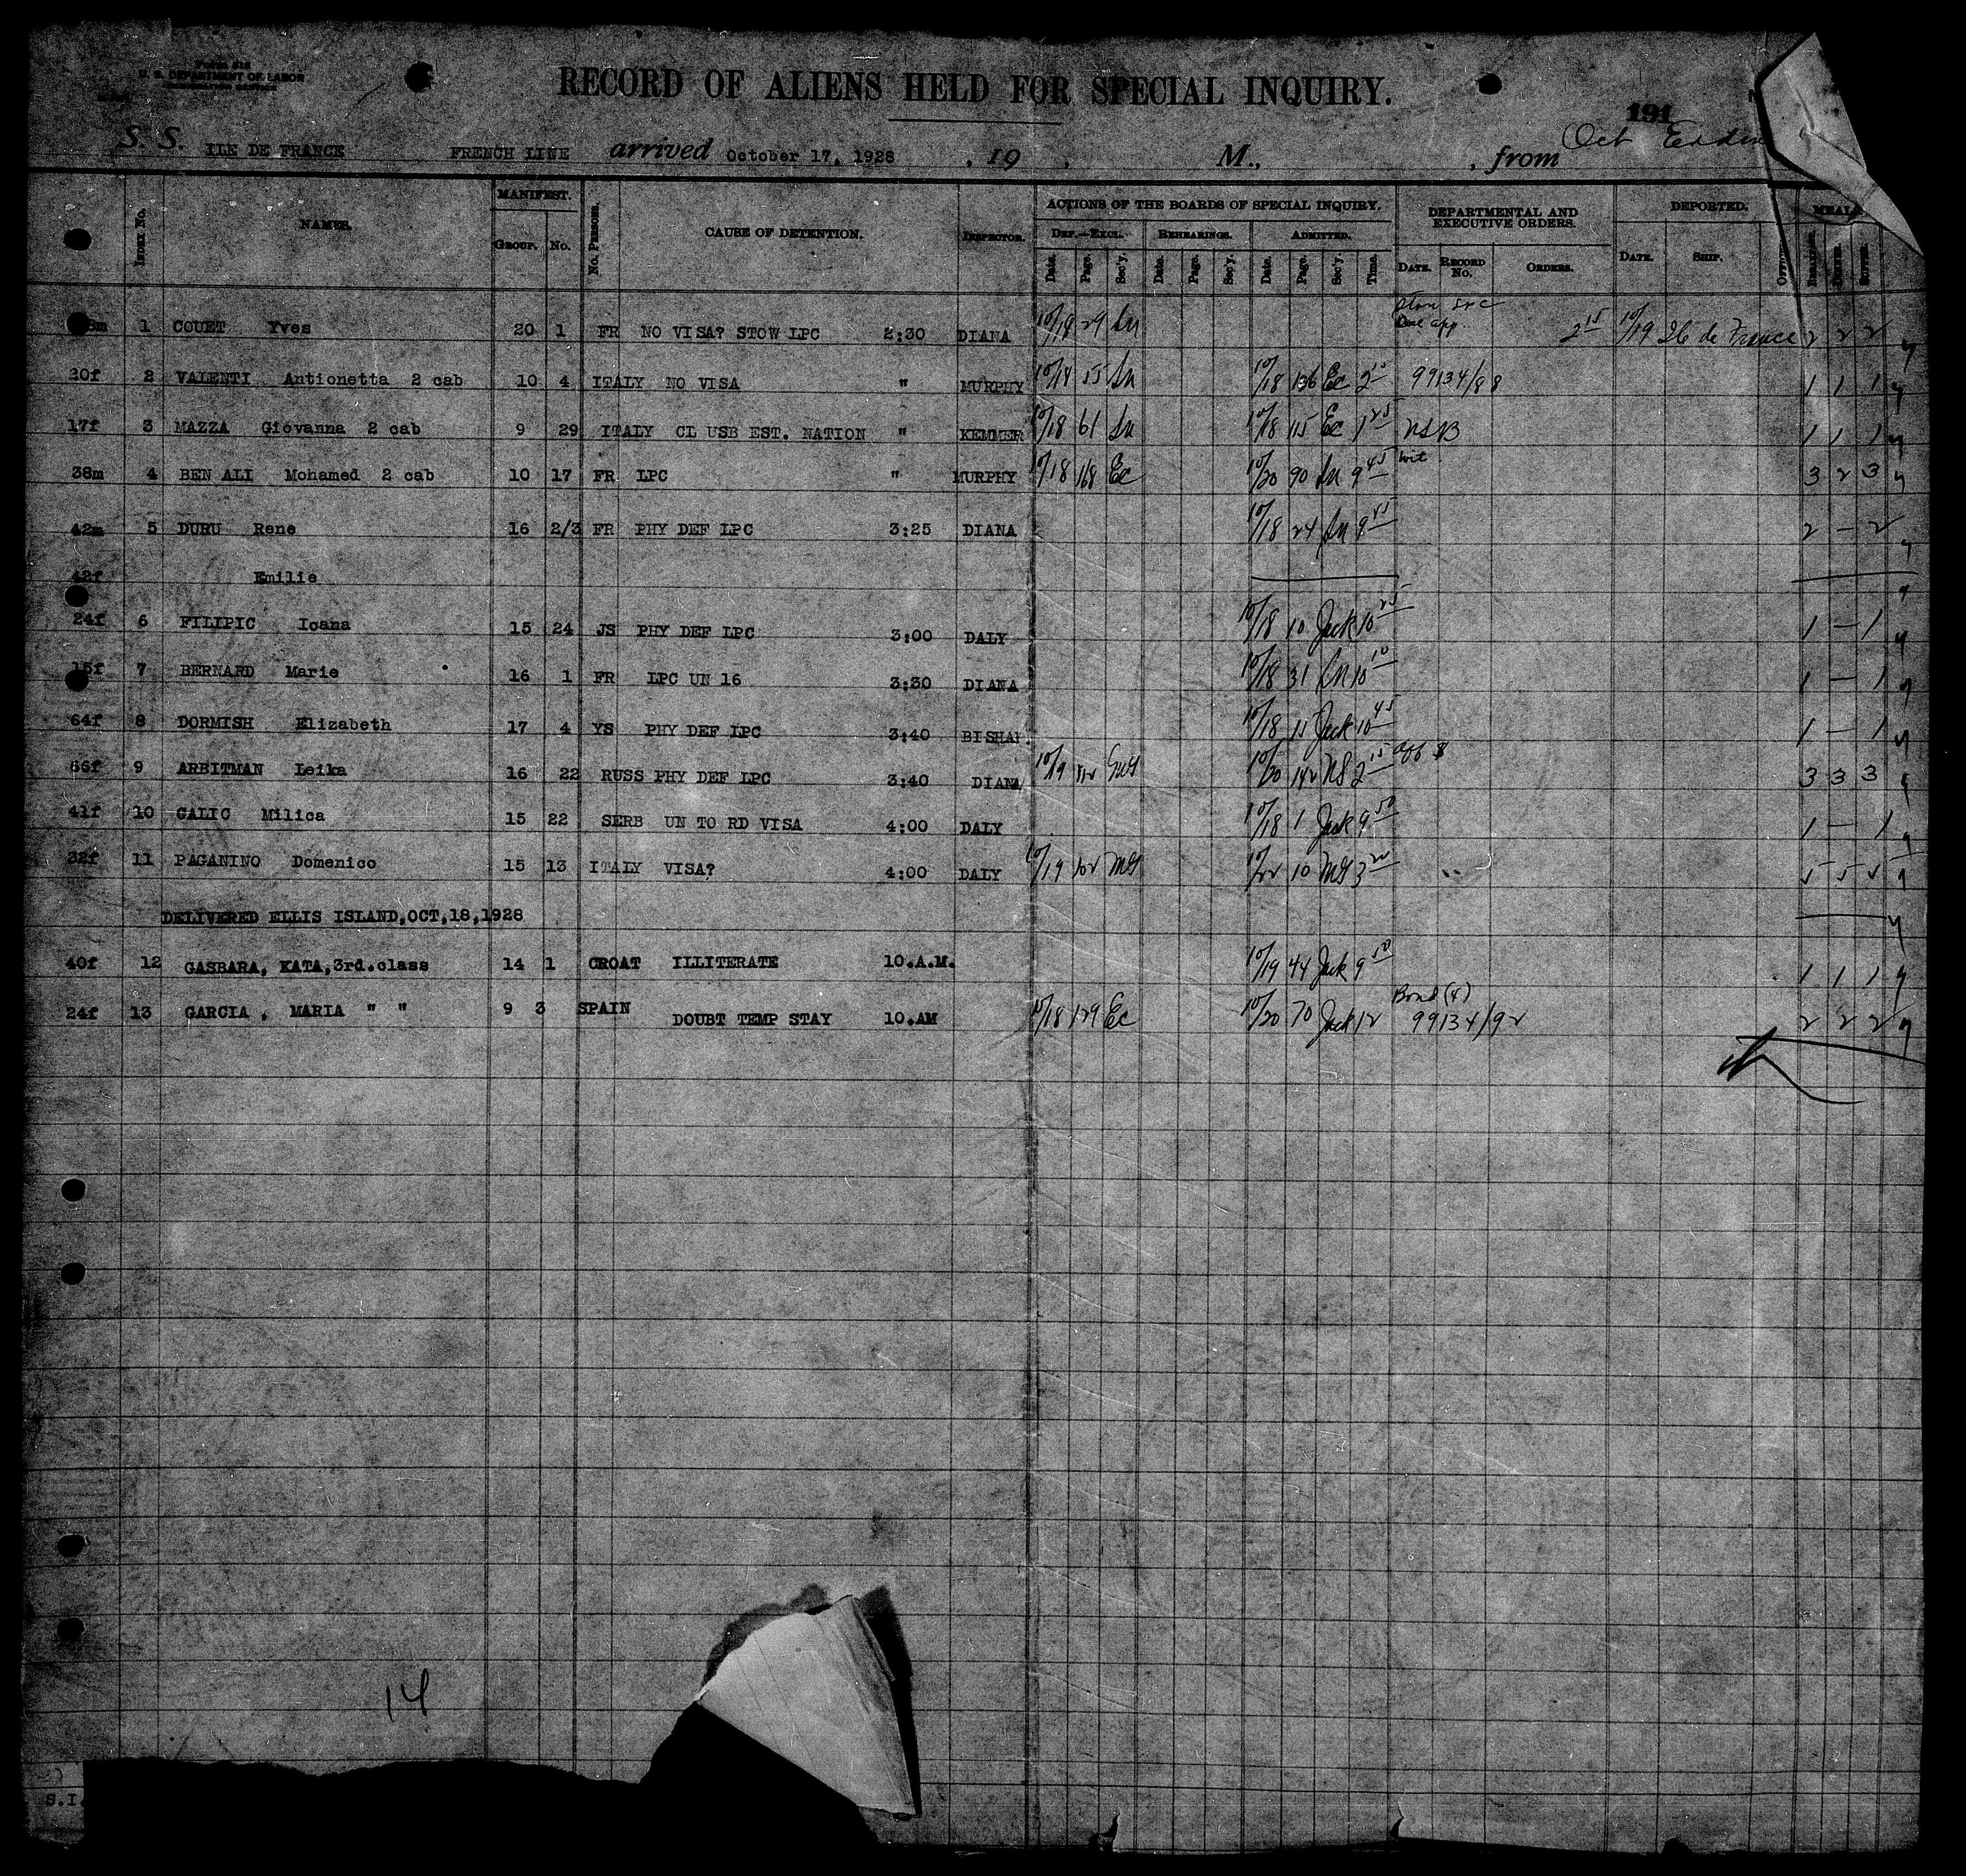 Form 518
U. S. DEPARTMENT OF LABOR
IMMIGRATION SERVICE
RECORD OF ALIENS HELD FOR SPECIAL INQUIRY.
191
S. S. ILE DE FRANCE FRENCH LINE arrived October 17, 1928 , 19 , M., , from Oct
INDEX NO. NAMES. MANIFEST. GROUP. NO. NO. PERSONS. CAUSE OF DETENTION. INSPECTOR. ACTIONS OF THE BOARDS OF SPECIAL INQUIRY. DEF.—EXCL. Date. Page. Sec'y. REHEARINGS. Date. Page. Sec'y. ADMITTED. Date. Page. Sec'y. Time. DEPARTMENTAL AND EXECUTIVE ORDERS. DATE. RECORD NO. ORDERS. DEPORTED. DATE. SHIP. MEALS. BREAKFAST. DINNER. SUPPER.
1 COUET Yves 20 1 FR NO VISA? STOW LPC 2:30 DIANA 10/18 29 2 15 10/19 de France 2 2 2
20f 2 VALENTI Antionetta 2 cab 10 4 ITALY NO VISA " MURPHY 10/18 55 10/18 136 Ec 99134/88 1 1 1
17f 3 MAZZA Giovanna 2 cab 9 29 ITALY CL USB EST. NATION " KEMMER 10/18 61 10/18 115 Ec 1 25 1 1 1
38m 4 BEN ALI Mohamed 2 cab 10 17 FR LPC " MURPHY 10/18 168 Ec 10/20 90 9 45 3 2 3
42m 5 DURU Rene 16 2/3 FR PHY DEF LPC 3:25 DIANA 10/18 24 9 45 2 — 2
42f Emilie
24f 6 FILIPIC Ioana 15 24 JS PHY DEF LPC 3:00 DALY 10/18 10 Jack 10 25 1 — 1
15f 7 BERNARD Marie 16 1 FR LPC UN 16 3:30 DIANA 10/18 31 10 10 1 — 1
64f 8 DORMISH Elizabeth 17 4 YS PHY DEF LPC 3:40 BISHAR 10/18 15 Jack 10 45 1 — 1
66f 9 ARBITMAN Leika 16 22 RUSS PHY DEF LPC 3:40 DIANA 10/19 10/20 142 NS 2 15 3 3 3
41f 10 GALIC Milica 15 22 SERB UN TO RD VISA 4:00 DALY 10/18 1 Jack 9 50 1 — 1
32f 11 PAGANINO Domenico 15 13 ITALY VISA? 4:00 DALY 10/19 102 10/22 10 3 20 5 5 5
DELIVERED ELLIS ISLAND, OCT, 18, 1928
40f 12 GASBARA, KATA, 3rd.class 14 1 CROAT ILLITERATE 10.A.M. 10/19 44 Jack 9 50 1 1 1
24f 13 GARCIA , MARIA " " 9 3 SPAIN DOUBT TEMP STAY 10.AM 10/18 129 Ec 10/20 70 Jack 12 Bond (4) 99134/92 2 2 2
14
S.I.